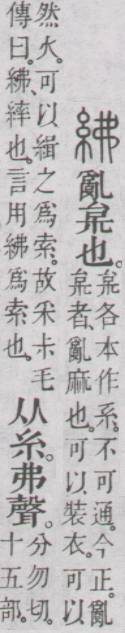 紼亂枲也。枲各本作系。不可通。今正。亂枲者、亂麻也。可以裝衣。可以
然火。可以緝之爲索。故采尗毛傳曰。紼、繂也。言用紼爲索也。从糸。弗聲。分勿切。十五部。